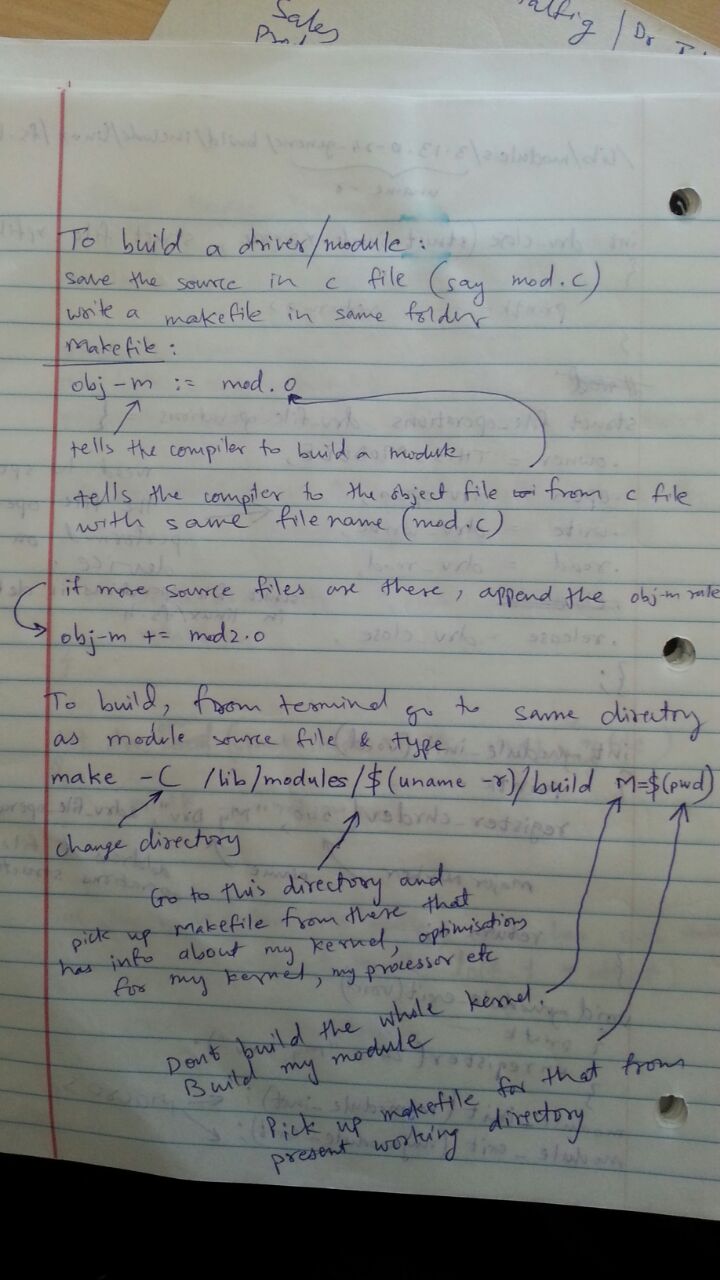 Sales
/ Dr
To build a driver/module:
save the source in c file (say mod.c)
write a makefile in same folder
Makefile:
obj-m := mod.o
tells the compiler to build a module
tells the compiler to the object file from c file
with same filename (mod.c)
if more source files are there, append the obj-m rule
obj-m += mod2.o
To build, from terminal go to same directory
as module source file & type
make -C /lib/modules/$(uname -r)/build M=$(pwd)
change directory
Go to this directory and
pick up makefile from there that
has info about my kernel, optimisations
for my kernel, my processor etc
Dont build the whole kernel.
Build my module
Pick up makefile for that from
present working directory